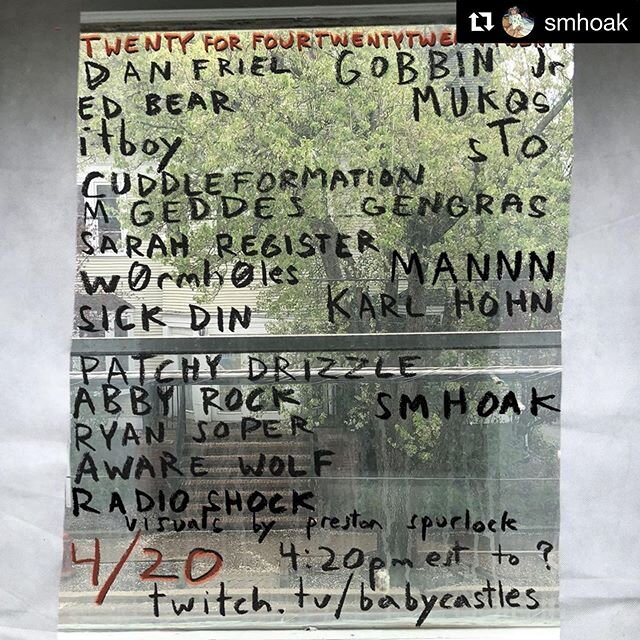 smhoak
TWENTY FOR FOURTWENTYTWE
DAN FRIEL GOBBIN Jr
ED BEAR MUKQS
itboy sTO
CUDDLEFORMATION
M GEDDES GENGRAS
SARAH REGISTER
wØrmhØles MANNN
SICK DIN KARL HOHN
PATCHY DRIZZLE
ABBY ROCK SMHOAK
RYAN SOPER
AWARE WOLF
RADIO SHOCK
visuals by preston spurlock
4/20 4:20pm est to ?
twitch.tv/babycastles